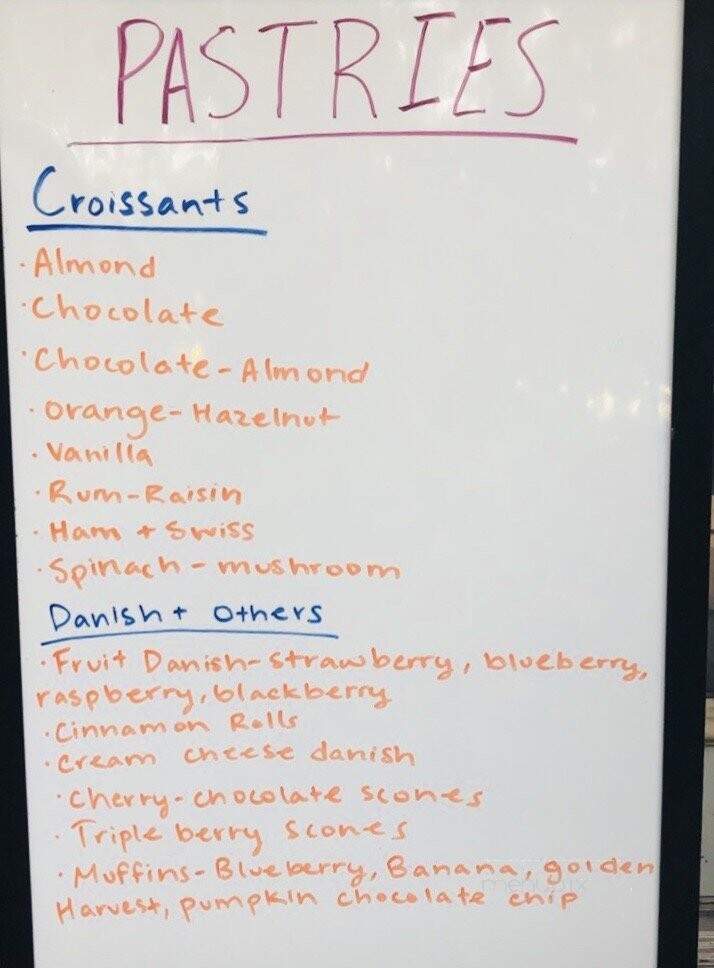 PASTRIES
Croissants
· Almond
· Chocolate
· Chocolate-Almond
· Orange-Hazelnut
· Vanilla
· Rum-Raisin
· Ham + Swiss
· Spinach-mushroom
Danish + Others
· Fruit Danish-strawberry, blueberry,
raspberry, blackberry
· Cinnamon Rolls
· cream cheese danish
· cherry-chocolate scones
· Triple berry scones
· Muffins-Blueberry, Banana, golden
Harvest, pumpkin chocolate chip